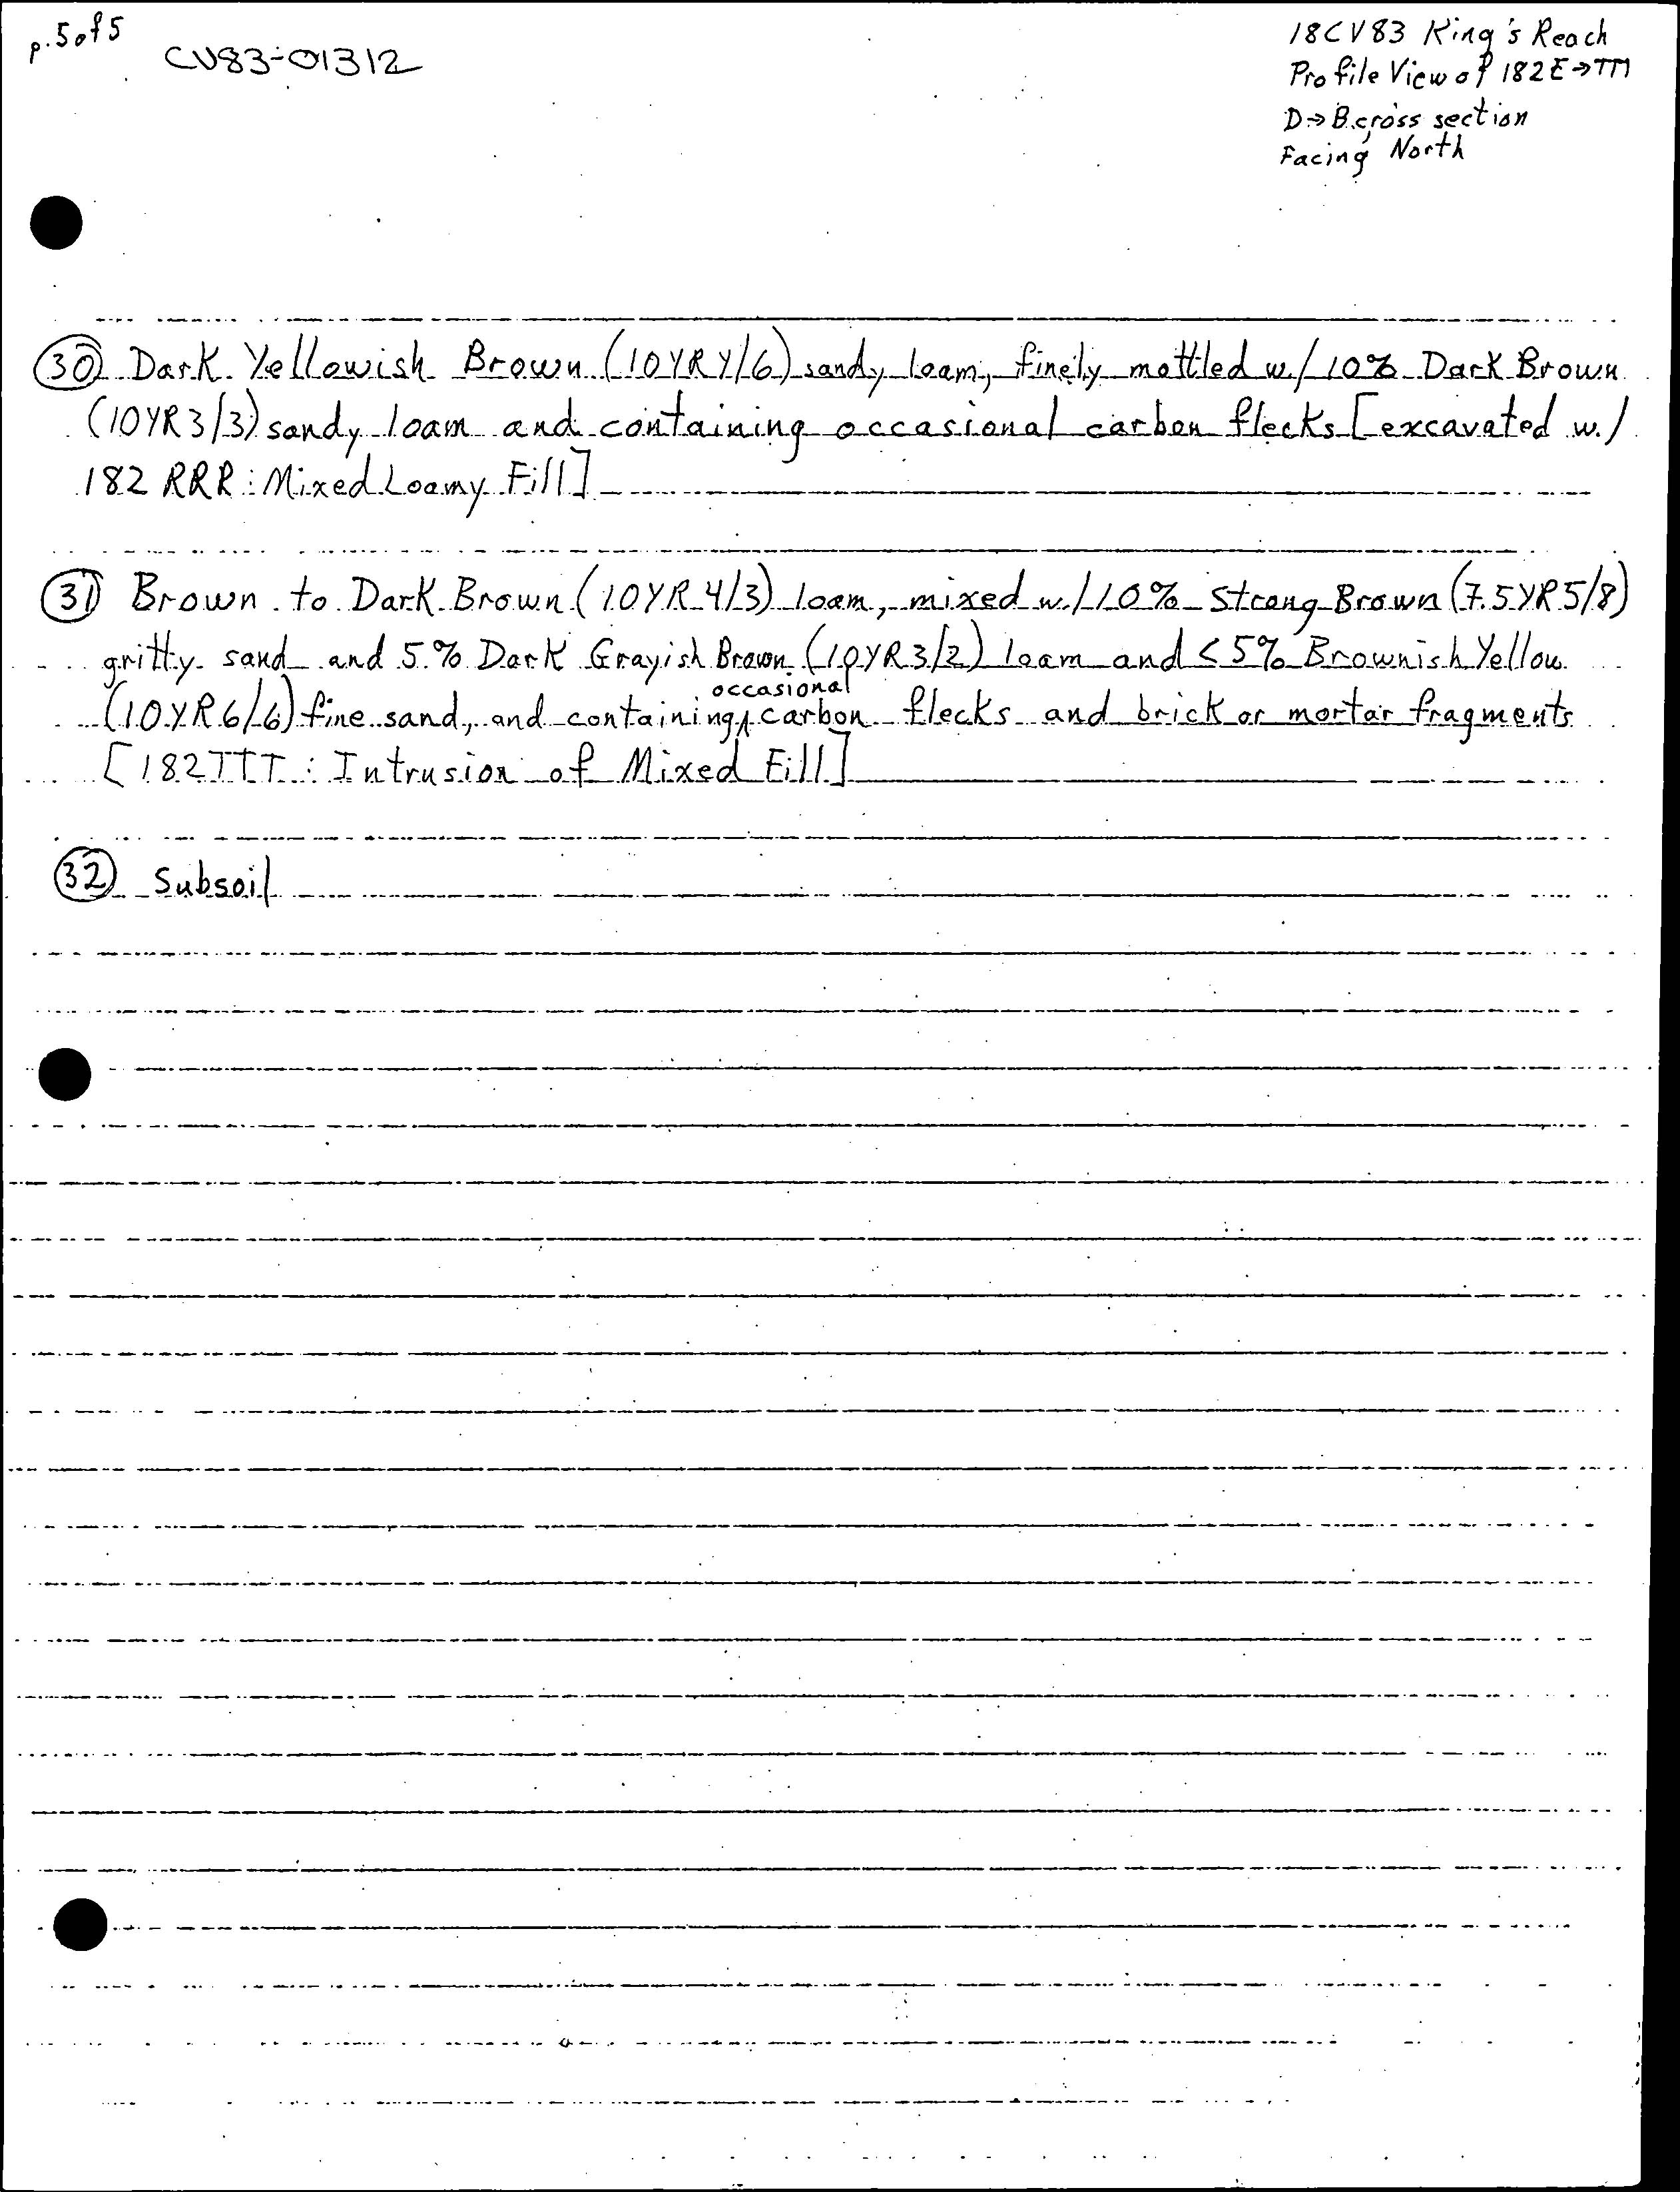 p. 5 of 5
CV83-01312
18CV83 King's Reach
Profile View of 182E→TTT
D→B cross section
Facing North
30 Dark Yellowish Brown (10YR 4/6) sandy loam, finely mottled w/ 10% Dark Brown
(10YR 3/3) sandy loam and containing occasional carbon flecks [excavated w/
182 RRR: Mixed Loamy Fill]
31 Brown to Dark Brown (10YR 4/3) loam, mixed w/ 10% Strong Brown (7.5YR 5/8)
gritty sand and 5% Dark Grayish Brown (10YR 3/2) loam and <5% Brownish Yellow
(10YR 6/6) fine sand, and containing occasional carbon flecks and brick or mortar fragments
[182TTT: Intrusion of Mixed Fill]
32 Subsoil